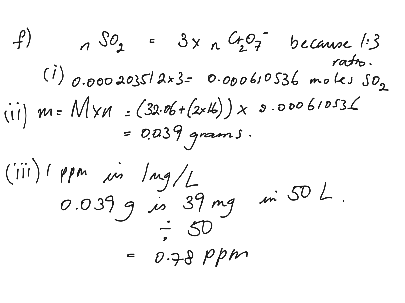 f) n SO₂ = 3 x n Cr₂O₇⁻ because 1:3
ratio.
(i) 0.000203512x3 = 0.000610536 moles SO₂
(ii) m = Mxn = (32.06+(2x16)) x 0.000610536
= 0.039 grams.
(iii) 1 ppm is 1mg/L
0.039 g is 39 mg in 50 L.
÷ 50
= 0.78 ppm